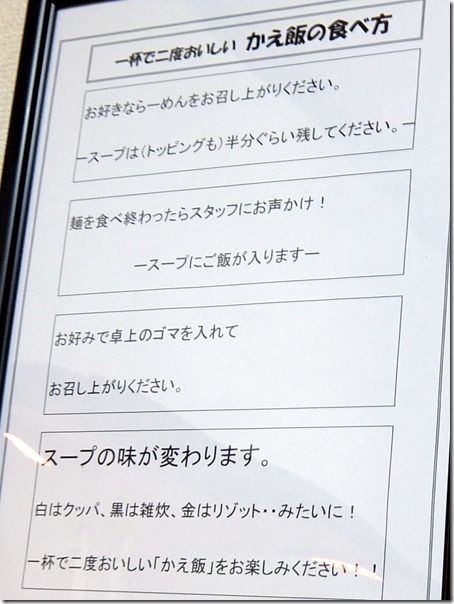 一杯で二度おいしい かえ飯の食べ方
お好きならーめんをお召し上がりください。
ースープは(トッピングも)半分ぐらい残してください。ー
麺を食べ終わったらスタッフにお声かけ！
ースープにご飯が入りますー
お好みで卓上のゴマを入れて
お召し上がりください。
スープの味が変わります。
白はクッパ、黒は雑炊、金はリゾット・・みたいに！
一杯で二度おいしい「かえ飯」をお楽しみください！！